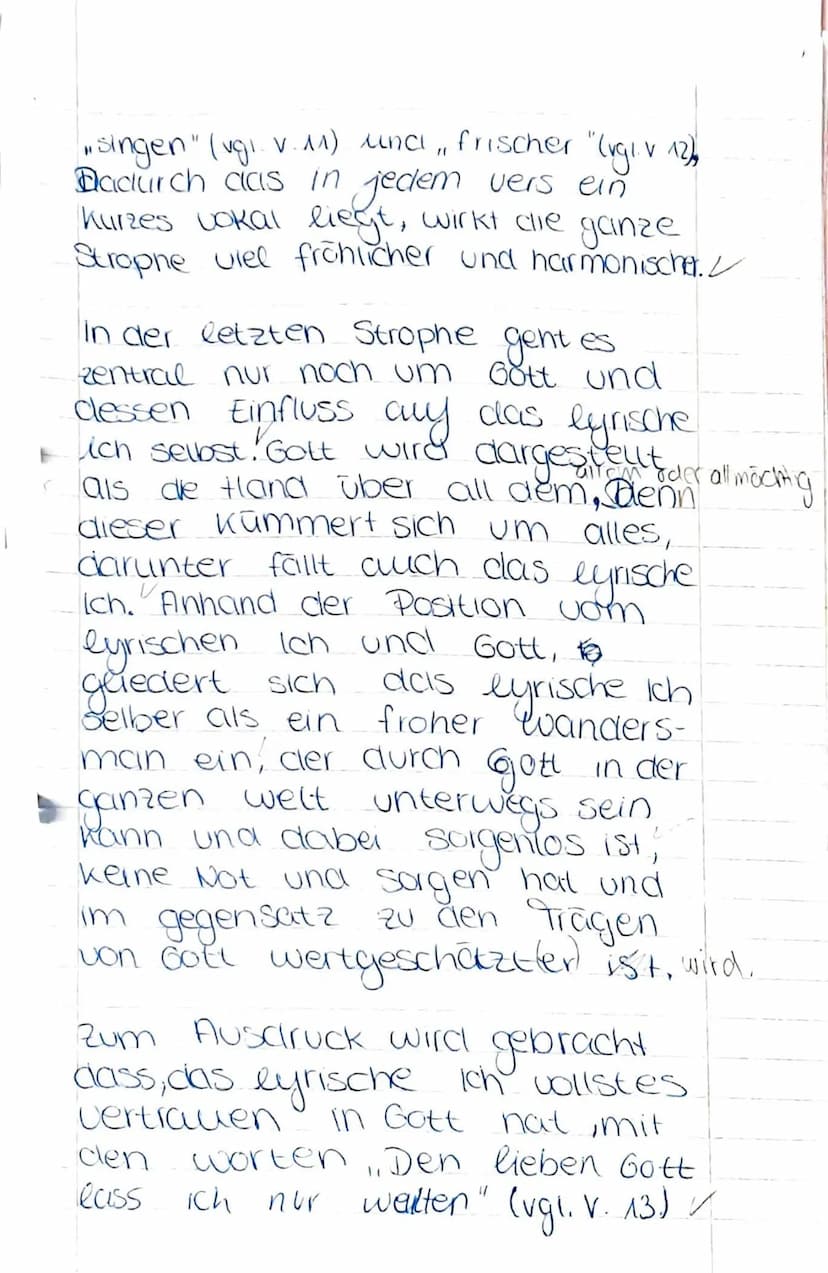 „singen" (vgl. V. 11) und „frischer" (vgl. V 12),
Dadurch das in jedem vers ein
kurzes vokal liegt, wirkt die ganze
Strophe viel fröhlicher und harmonischer. ✓
In der letzten Strophe geht es
zentral nur noch um Gott und
dessen Einfluss auf das lyrische
ich selbst. Gott wird dargestellt
allem oder allmächtig
als de Hand über all dem, Denn
dieser kümmert sich um alles,
darunter fällt auch das lyrische
Ich. Anhand der Position vom
lyrischen Ich und Gott,
gliedert sich das lyrische Ich
selber als ein froher Wanders-
man ein, der durch Gott in der
ganzen welt unterwegs sein
kann und dabei sorgenlos ist,
keine Not und sorgen hat und
im gegensatz zu den Trägen
von Gott wertgeschätzt(er) ist, wird.
Zum Ausdruck wird gebracht
dass, das lyrische Ich vollstes
vertrauen in Gott hat, mit
den worten „Den lieben Gott
lass ich nur walten" (vgl. V. 13.) ✓